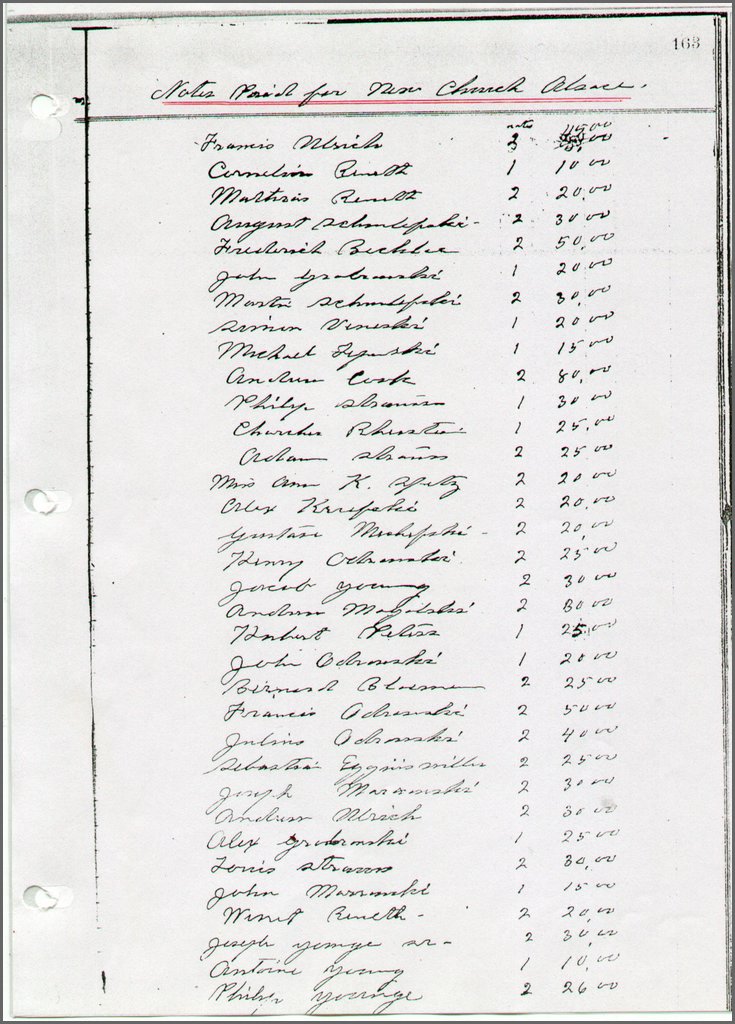 163
Notes Paid for New Church Alsace.
notes
Francis Ulrich 2 45.00
Cornelius 1 10.00
Mathias 2 20.00
August 2 30.00
Frederich Bechler 2 50.00
John Grabowski 1 20.00
Martin 2 30.00
Simon 1 20.00
Michael 1 15.00
Andrew Cook 2 80.00
Philip Strauss 1 30.00
Charles 1 25.00
Adam Strauss 2 25.00
Mrs Ann K. Spitz 2 20.00
Alex 2 20.00
Gustave 2 20.00
Henry Odrowski 2 25.00
Jacob Young 2 30.00
Andrew 2 00
Hubert Peters 1 25.00
John Odrowski 1 20.00
Bernard 2 25.00
Francis Odrowski 2 50.00
Julius Odrowski 2 40.00
2 25.00
Joseph 2 30.00
Andrew Ulrich 2 30.00
Alex Grabowski 1 25.00
Louis Strauss 2 30.00
John 1 15.00
2 20.00
Joseph Younge sr - 2 30.00
Antoine Young 1 10.00
Philip Younge 2 26.00